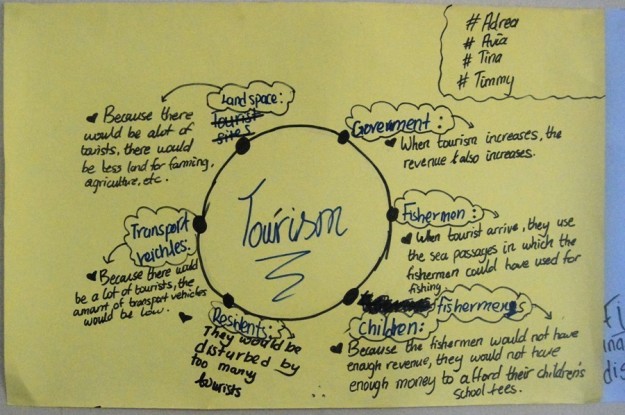 # Adrea
# Avia
# Tina
# Timmy
Landspace:
Tourist
sites
Because there
would be alot of
tourists, there would
be less land for farming,
agriculture, etc.
Goverment:
When tourism increases, the
revenue also increases.
Tourison
Fishermen:
When tourist arrive, they use
the sea passages in which the
fishermen could have used for
fishing
Transport
veichles:
Because there would
be a lot of tourists, the
amount of transport vehicles
would be low.
Residents:
They would be
disturbed by
too many
tourists
fishermens
children:
Because the fishermen would not have
enough revenue, they would not have
enough money to afford their children's
school fees.
Fi
ina
dis